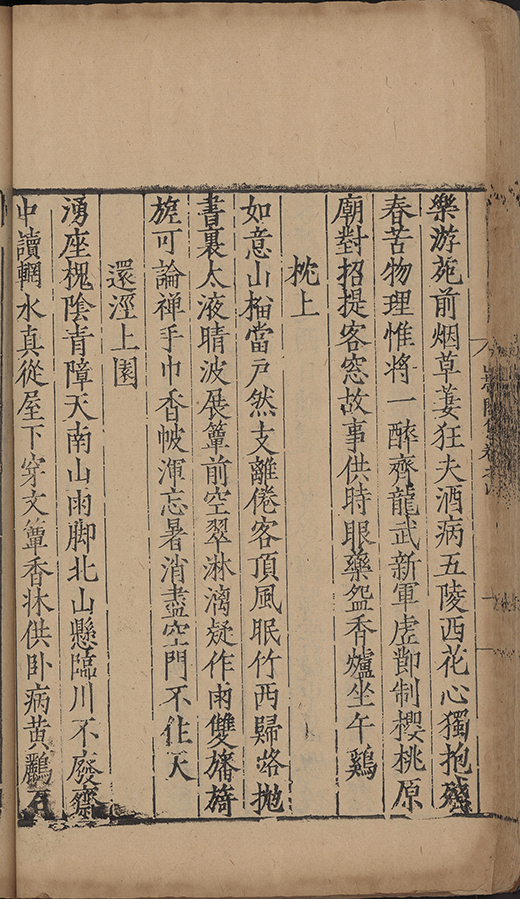 樂游苑前烟草萋狂夫酒病五陵西花心獨抱殘
春苦物理惟將一醉齊龍武新軍虛節制櫻桃原
廟對招提客窓故事供時眼藥盌香爐坐午鷄
枕上
如意山榴當戶然支離倦客頂風眠竹西歸路抛
書裹太液晴波展簟前空翠淋漓疑作雨雙旛旖
旎可論禅手巾香帔渾忘暑消盡空門不住天
還涇上園
湧座槐陰青障天南山雨脚北山懸臨川不廢齋
中讀輞水真從屋下穿文簟香牀供卧病黃鸝